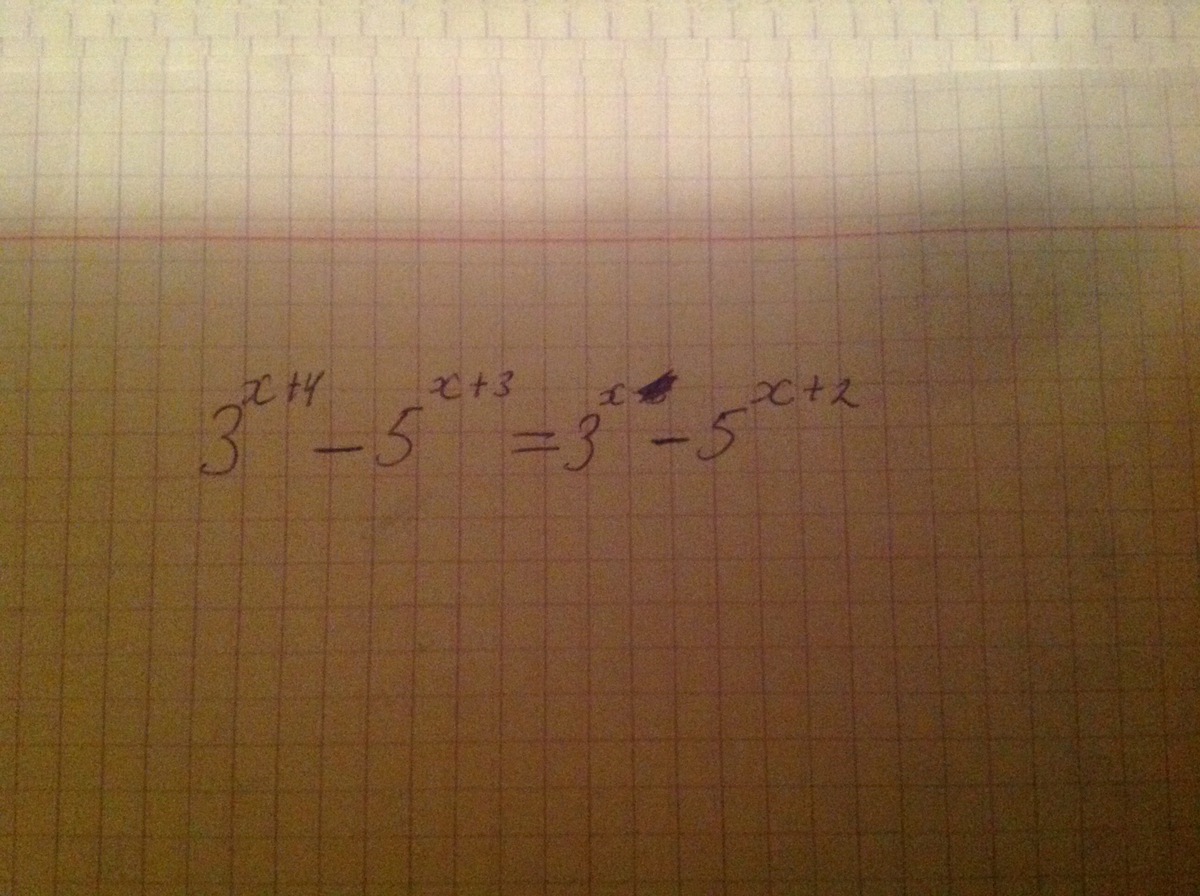 3^{x+4} - 5^{x+3} = 3^{x} - 5^{x+2}